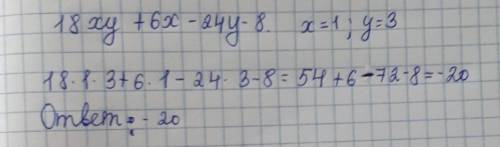 18xy + 6x - 24y - 8. x = 1; y = 3
18 · 1 · 3 + 6 · 1 - 24 · 3 - 8 = 54 + 6 - 72 - 8 = -20
Ответ: -20